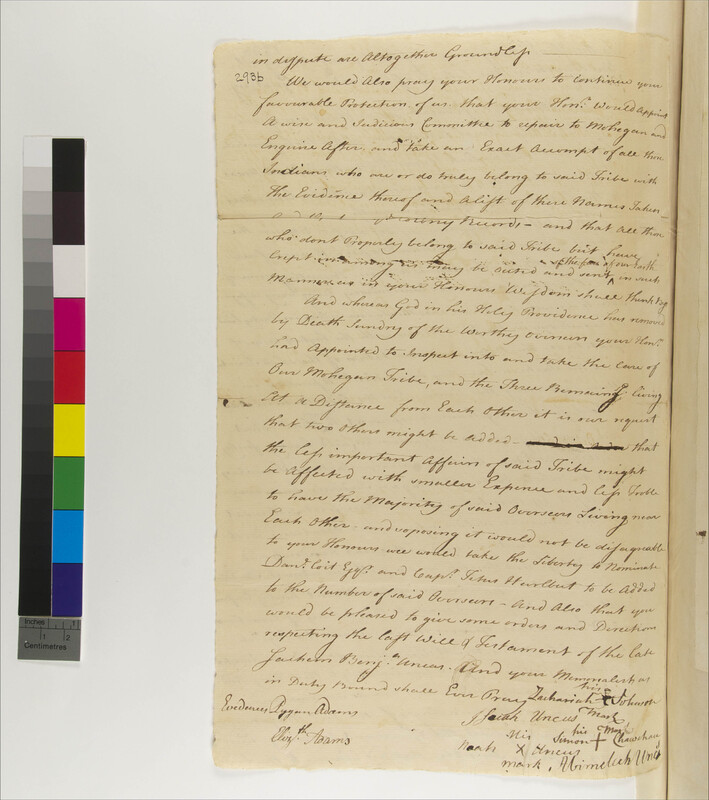 in dispute are Altogether Groundless
293b
We would Also pray your Honours to continue your
favourable Protection of us that your Honrs. Would Appoint
A wise and Judicious Committee to repair to Mohegan and
Enquire After and take an Exact Accompt of all those
Indians who are or do truly belong to said Tribe with
the Evidence thereof and a list of there Names Taken
Records - and that all those
who dont Properly belong to said Tribe but have
Crept in among us may be outed and sent in such
Manner as in your Honours Wisdom shall think
And whereas God in his Holy Providence has removed
by Death Sundry of the Worthy Overseers your Honrs.
had Appointed to Inspect into and take the Care of
Our Mohegan Tribe, and the Three Remaining living
At a Distance from Each Other it is our request
that two Others might be added - that
the less important Affairs of said Tribe might
be Affected with smaller Expence and less Troble
to have the Majority of said Overseers Living near
Each Other - and soposing it would not be disagreable
to your Honours wee would take the Liberty to Nominate
Danl. Coit Esqr. and Capt. Titus Hurlbut to be Added
to the Number of said Overseers - And Also that you
would be pleased to give some orders and Direction
respecting the last Will & Testament of the late
Sachem Benjn. Uncas. And your Memorialists as
in Duty Bound shall Ever Pray Zachariah his Johnson
Mark
Evidences Pygan Adams
Isaiah Uncus
his Mark
Simon + Chawchew
Elizth. Adams
Noah his X Uncus
mark,
Uncus